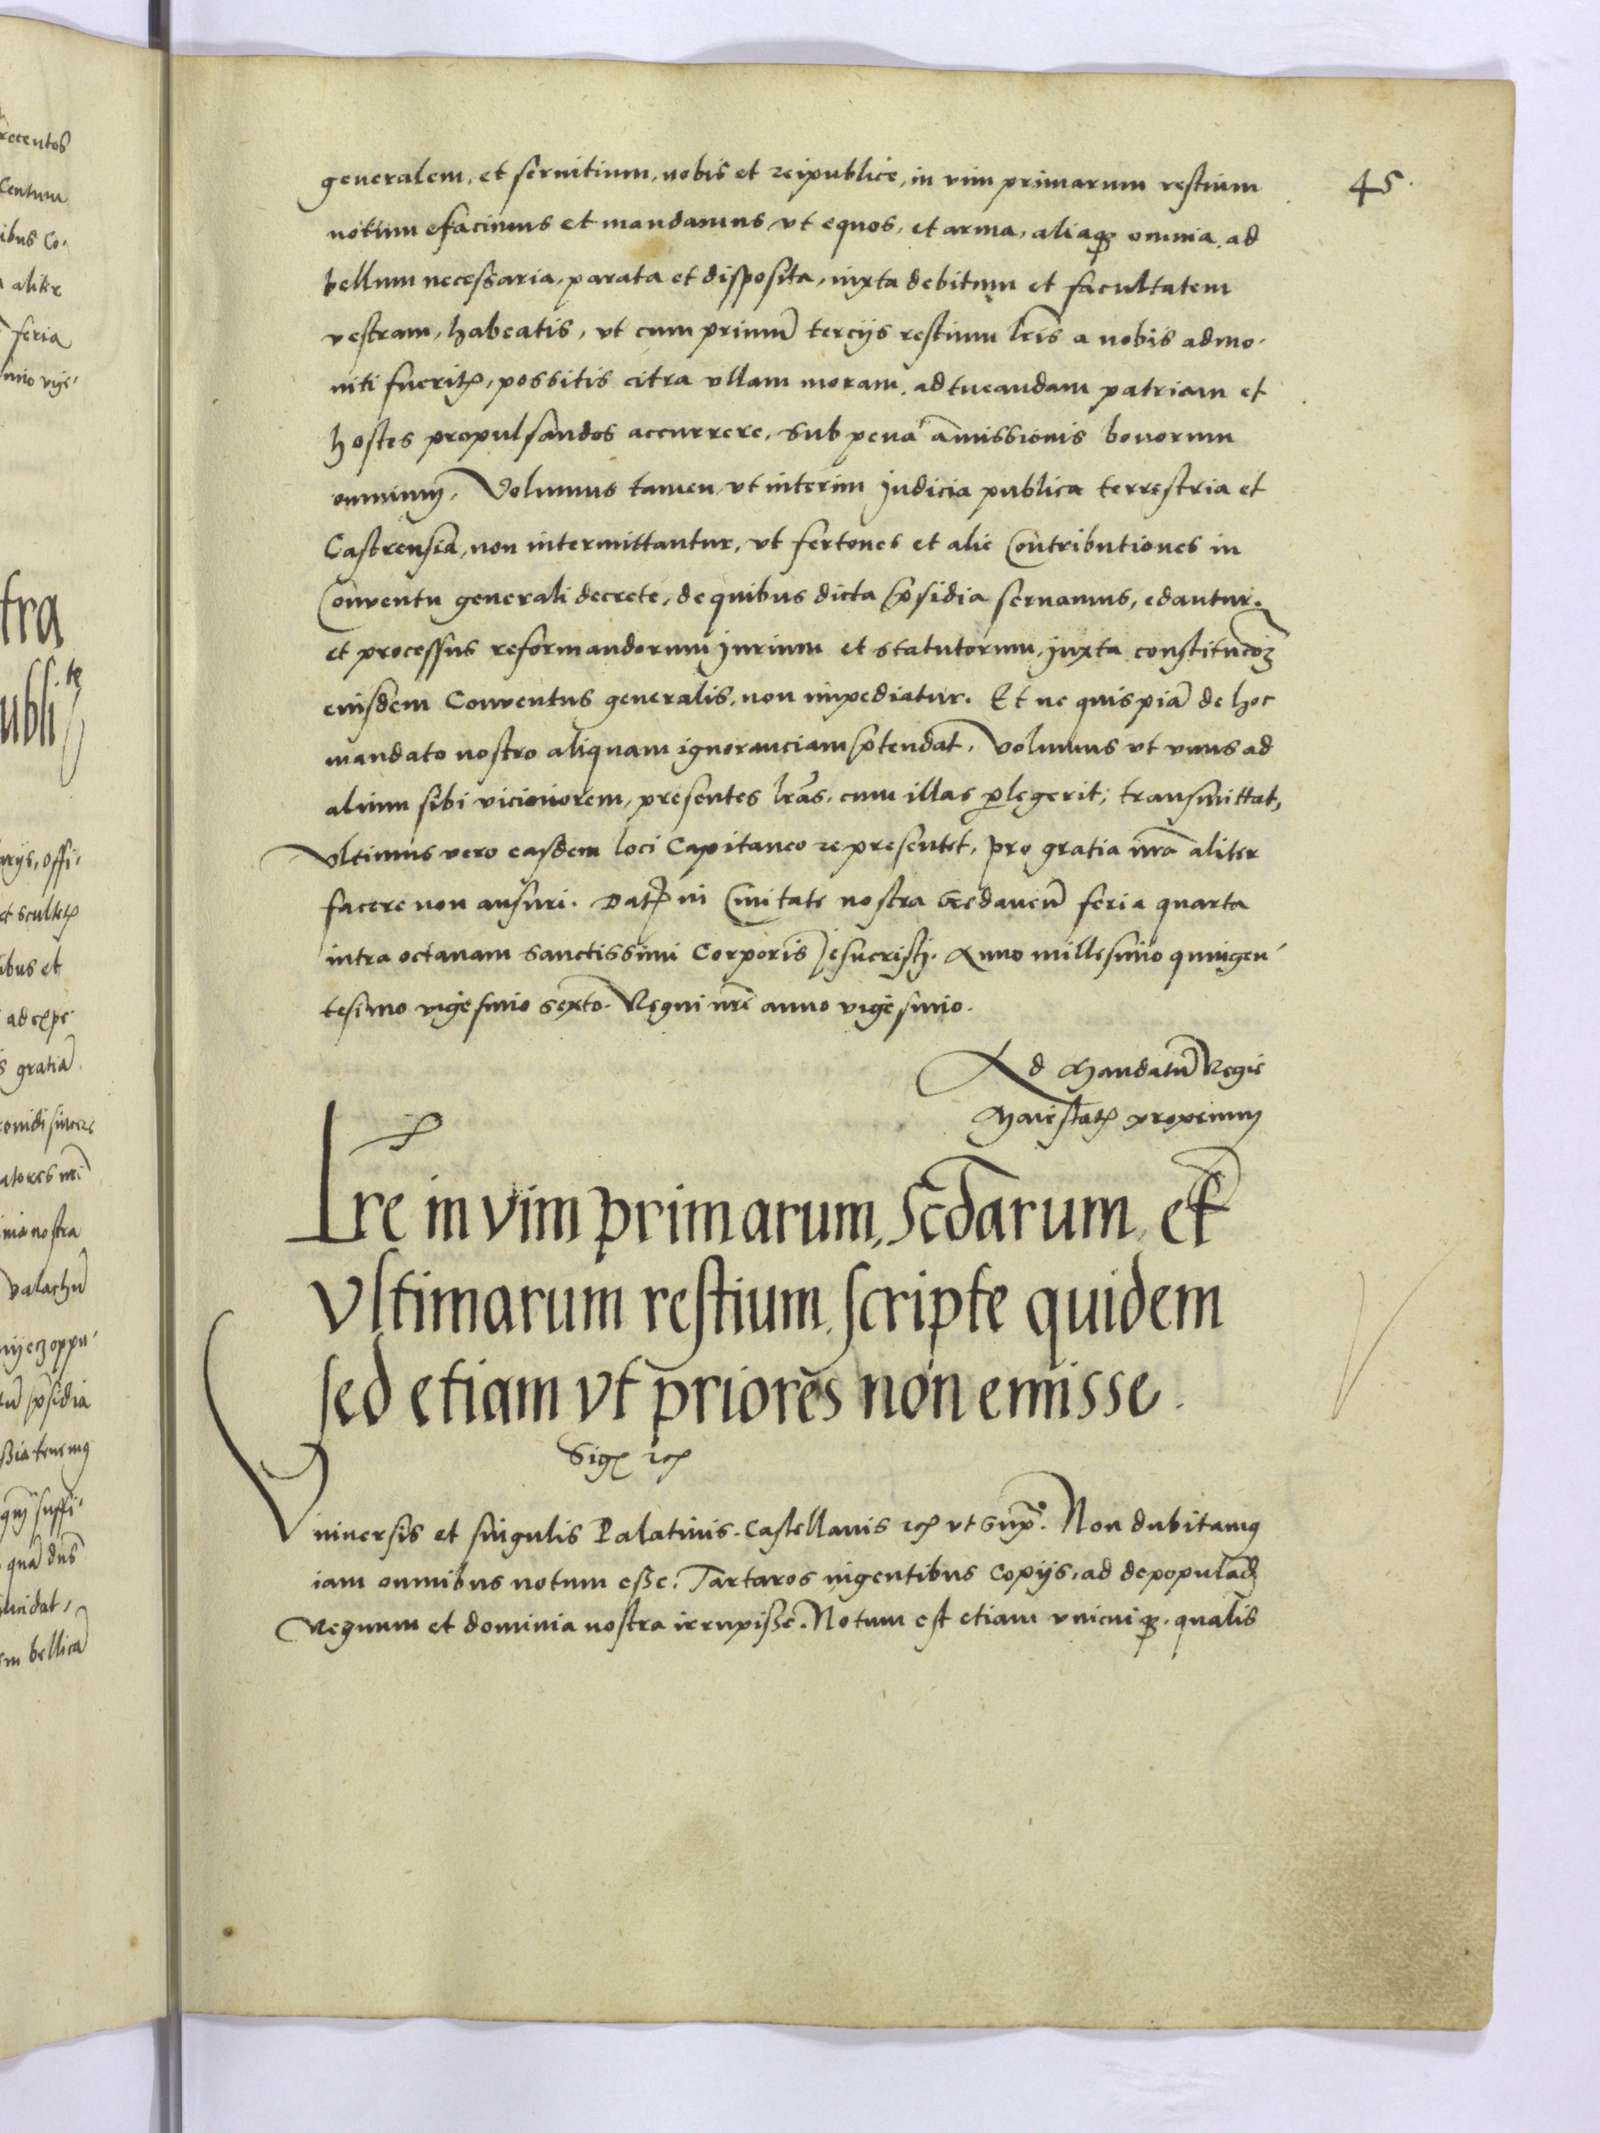 generalem, et seruitium, nobis et reipublice, in vim primarum restium
notum efacimus et mandamus, vt equos, et arma, aliaqꝫ omnia ad
bellum necessaria, parata et disposita, iuxta debitum et facultatem
vestram, habeatis, vt cum primum̃ tercijs restium lr̃is a nobis admo-
niti fueritꝭ, possitis citra vllam moram, ad tueandam patriam et
hostes propulsandos accurrere, sub pena am̃issionis bonorum
omnium̃. Volumus tamen, vt interim Judicia publica terrestria et
Castrensia, non intermittantur, vt fertones et alie Contributiones in
Conuentu generali decrete, de quibus dicta p̃sidia seruamus, edantur.
et processus reformandorum Jurium et statutorum, Juxta constitucõꝫ
eiusdem Conuentus generalis, non impediatur. Et ne quispiã de hoc
mandato nostro aliquam ignoranciam p̃tendat, Volumus vt vnus ad
alium sibi viciniorem, presentes lr̃as, cum illas ꝑlegerit, transmittat,
Vltimus vero easdem loci Capitaneo representet, pro gratia nr̃a aliter
facere non ausuri. Datꝭ in Ciuitate nostra Gedaneñ feria quarta
intra octauam sanctissimi Corporis Jesucristi. Anno millesimo quingen-
tesimo vigesimo sexto. Regni nr̃i anno vigesimo.
Ad Mandatũ Regie
Maiestatꝭ proprium
Lr̃e in vim primarum, Scd̃arum, et
Vltimarum restium, scripte quidem
sed etiam vt priores non emisse.
Sigꝭ rcꝭ
Vniuersis et singulis Palatinis. Castellanis rcꝭ vt supᷓ. Non dubitamꝰ
iam omnibus notum esse. Tartaros ingentibus copijs, ad depopulad̃
Regnum et dominia nostra irrupisse. Notum est etiam vnicuiqꝫ. qualis
45.